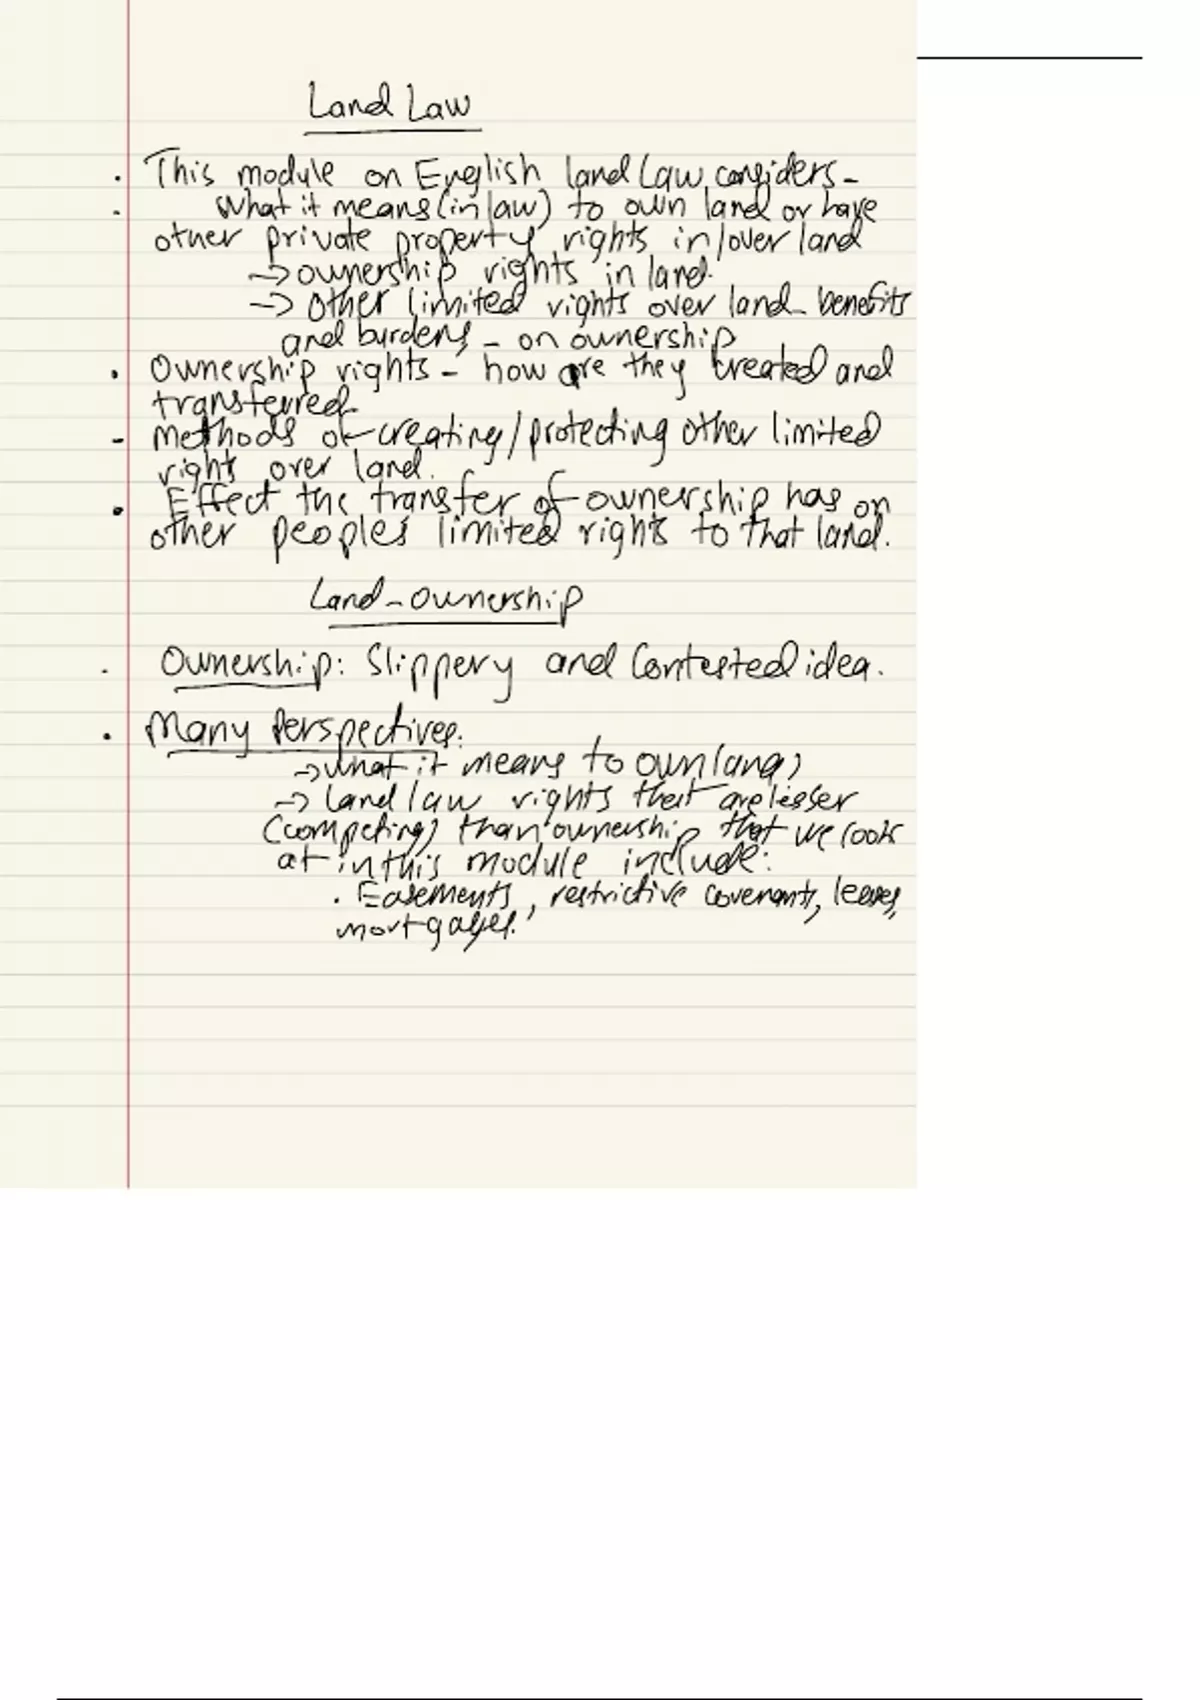 Land Law
. This module on English land law considers -
- what it means (in law) to own land or have
other private property rights in/over land
-> ownership rights in land.
-> other limited rights over land - benefits
and burdens - on ownership
. Ownership rights - how are they created and
transferred.
- Methods of creating/protecting other limited
rights over land.
. Effect the transfer of ownership has on
other peoples' limited rights to that land.
Land - ownership
. Ownership: Slippery and Contested idea.
. Many Perspectives:
-> what it means to own land
-> land law rights that are lesser
(competing) than ownership that we look
at in this module include:
. Easements, restrictive covenants, leases,
mortgages.